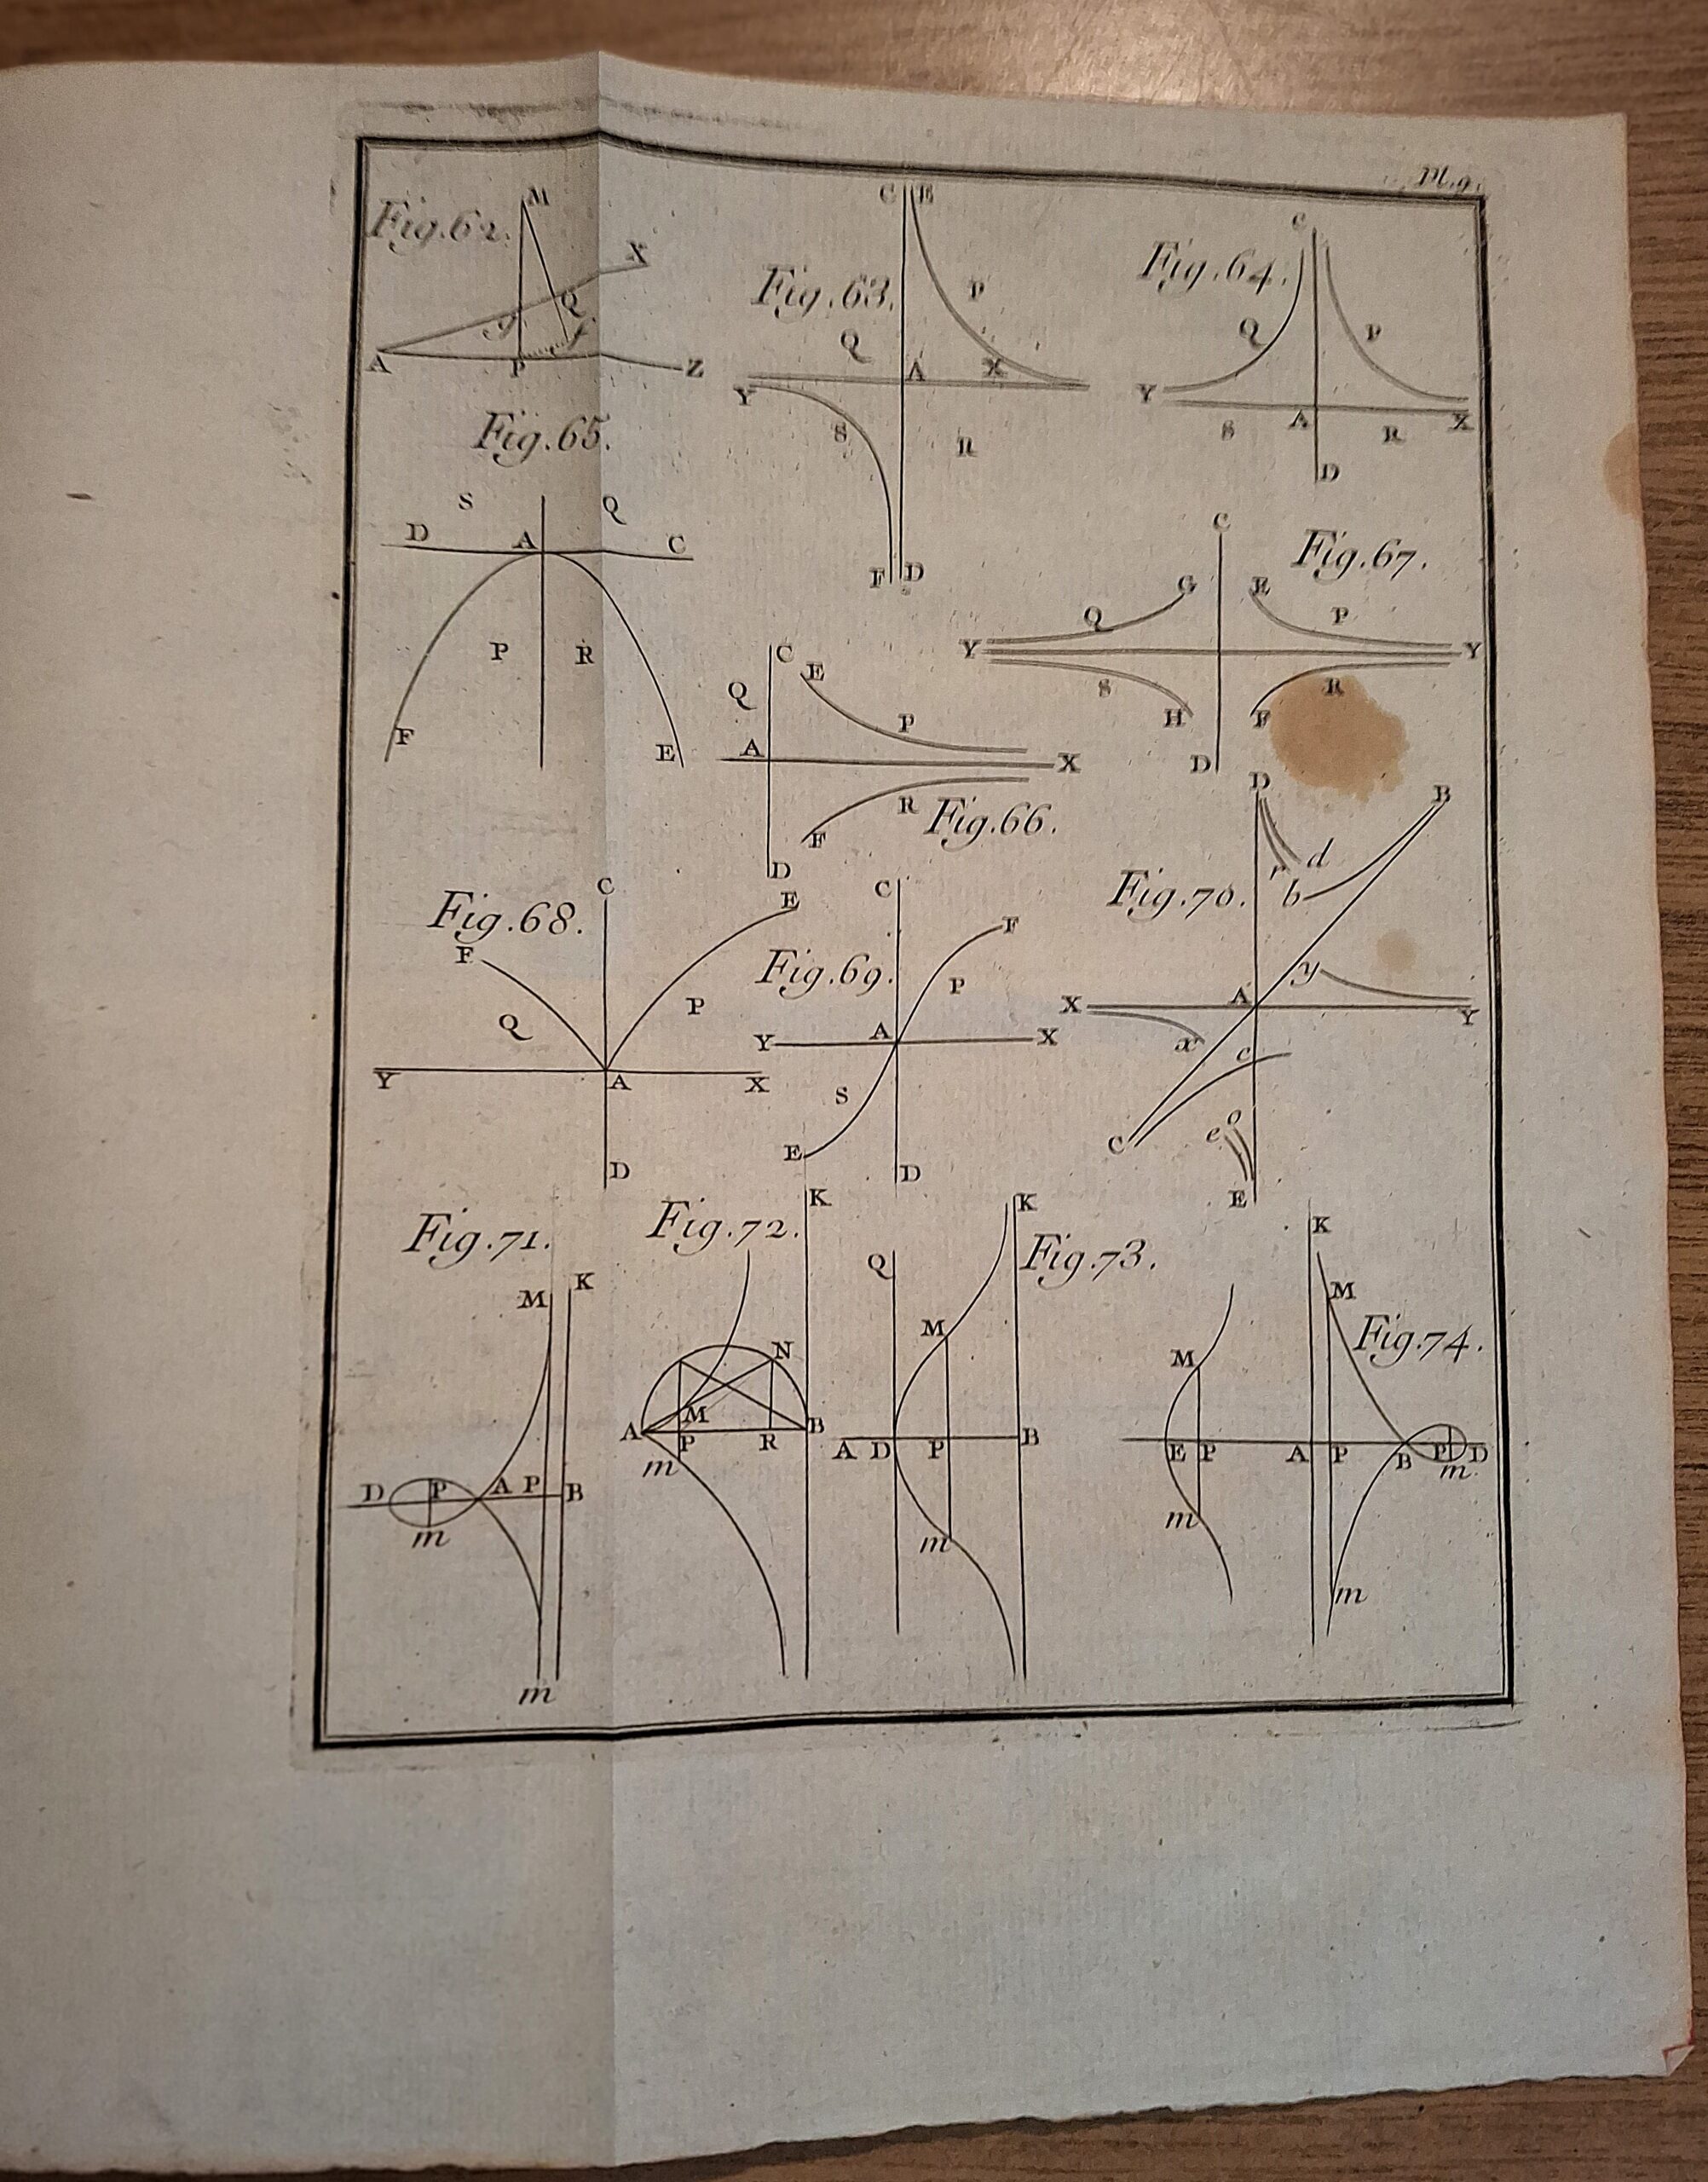 Pl. 9.
Fig. 62.
M
X
Q
g
f
A
P
Z
Fig. 63.
C E
P
Q
A X
Y
S
R
F D
Fig. 64.
C
Q P
Y
A X
S R
D
Fig. 65.
S Q
D A C
P R
F E
Fig. 66.
C E
Q
P
A X
R
F
D
Fig. 67.
C
G E
Q P
Y Y
S R
H F
D
Fig. 68.
C
E
F
P
Q
Y A X
D
Fig. 69.
C
F
P
Y A X
S
E
D
Fig. 70.
D B
d
r
b
y
X A Y
x
c
C
e o
E
Fig. 71.
M K
D P A P B
m
m
Fig. 72.
K
N
M
A P R B
m
Fig. 73.
K
Q
M
A D P B
m
Fig. 74.
K
M
M
E P A P B P D
m
m
m